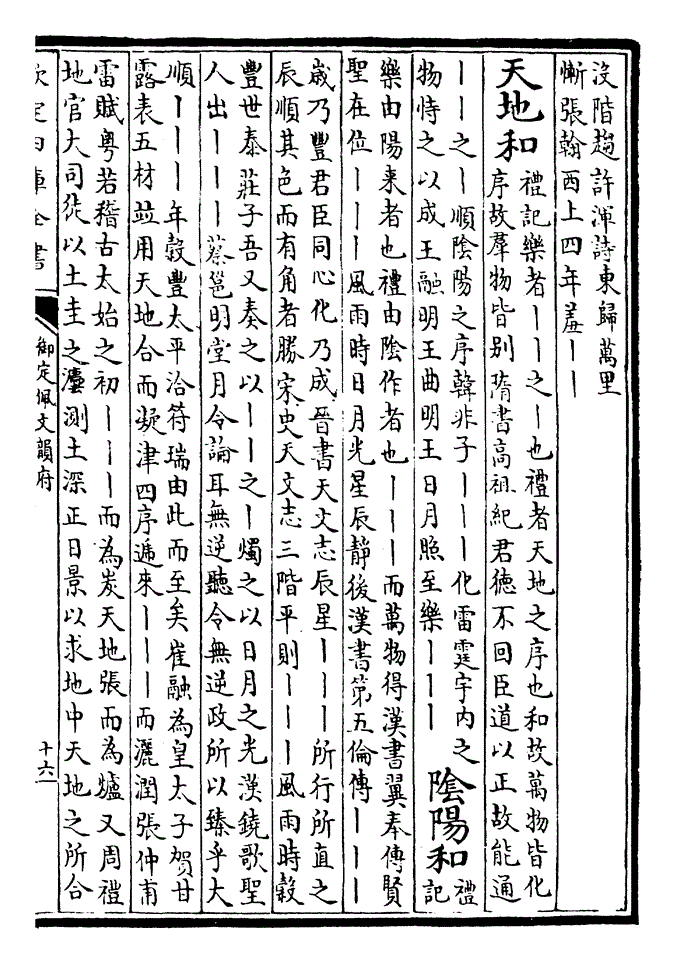 没階趨許渾詩東歸萬里
慚張翰西上四年羞丨丨
天地和
禮記樂者丨丨之丨也禮者天地之序也和故萬物皆化
序故羣物皆别隋書高祖紀君德不回臣道以正故能通
丨丨之丨順陰陽之序韓非子丨丨丨化雷霆宇内之
物恃之以成王融明王曲明王日月照至樂丨丨丨
陰陽和
禮
記
樂由陽来者也禮由陰作者也丨丨丨而萬物得漢書翼奉傳賢
聖在位丨丨丨風雨時日月光星辰靜後漢書第五倫傳丨丨丨
歲乃豐君臣同心化乃成晉書天文志辰星丨丨丨所行所直之
辰順其色而有角者勝宋史天文志三階平則丨丨丨風雨時穀
豐世泰莊子吾又奏之以丨丨之丨燭之以日月之光漢鐃歌聖
人出丨丨丨蔡邕明堂月令論耳無逆聽令無逆政所以臻乎大
順丨丨丨年穀豐太平洽符瑞由此而至矣崔融為皇太子賀甘
露表五材並用天地合而凝津四序遞來丨丨丨而灑潤張仲甫
雷賦粤若稽古太始之初丨丨丨而為炭天地張而為爐又周禮
地官大司徒以土圭之灋測土深正日景以求地中天地之所合
欽定四庫全書
御定佩文韻府
十六